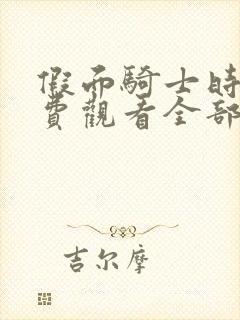 假而騎士時
費觀看全部
吉尔摩